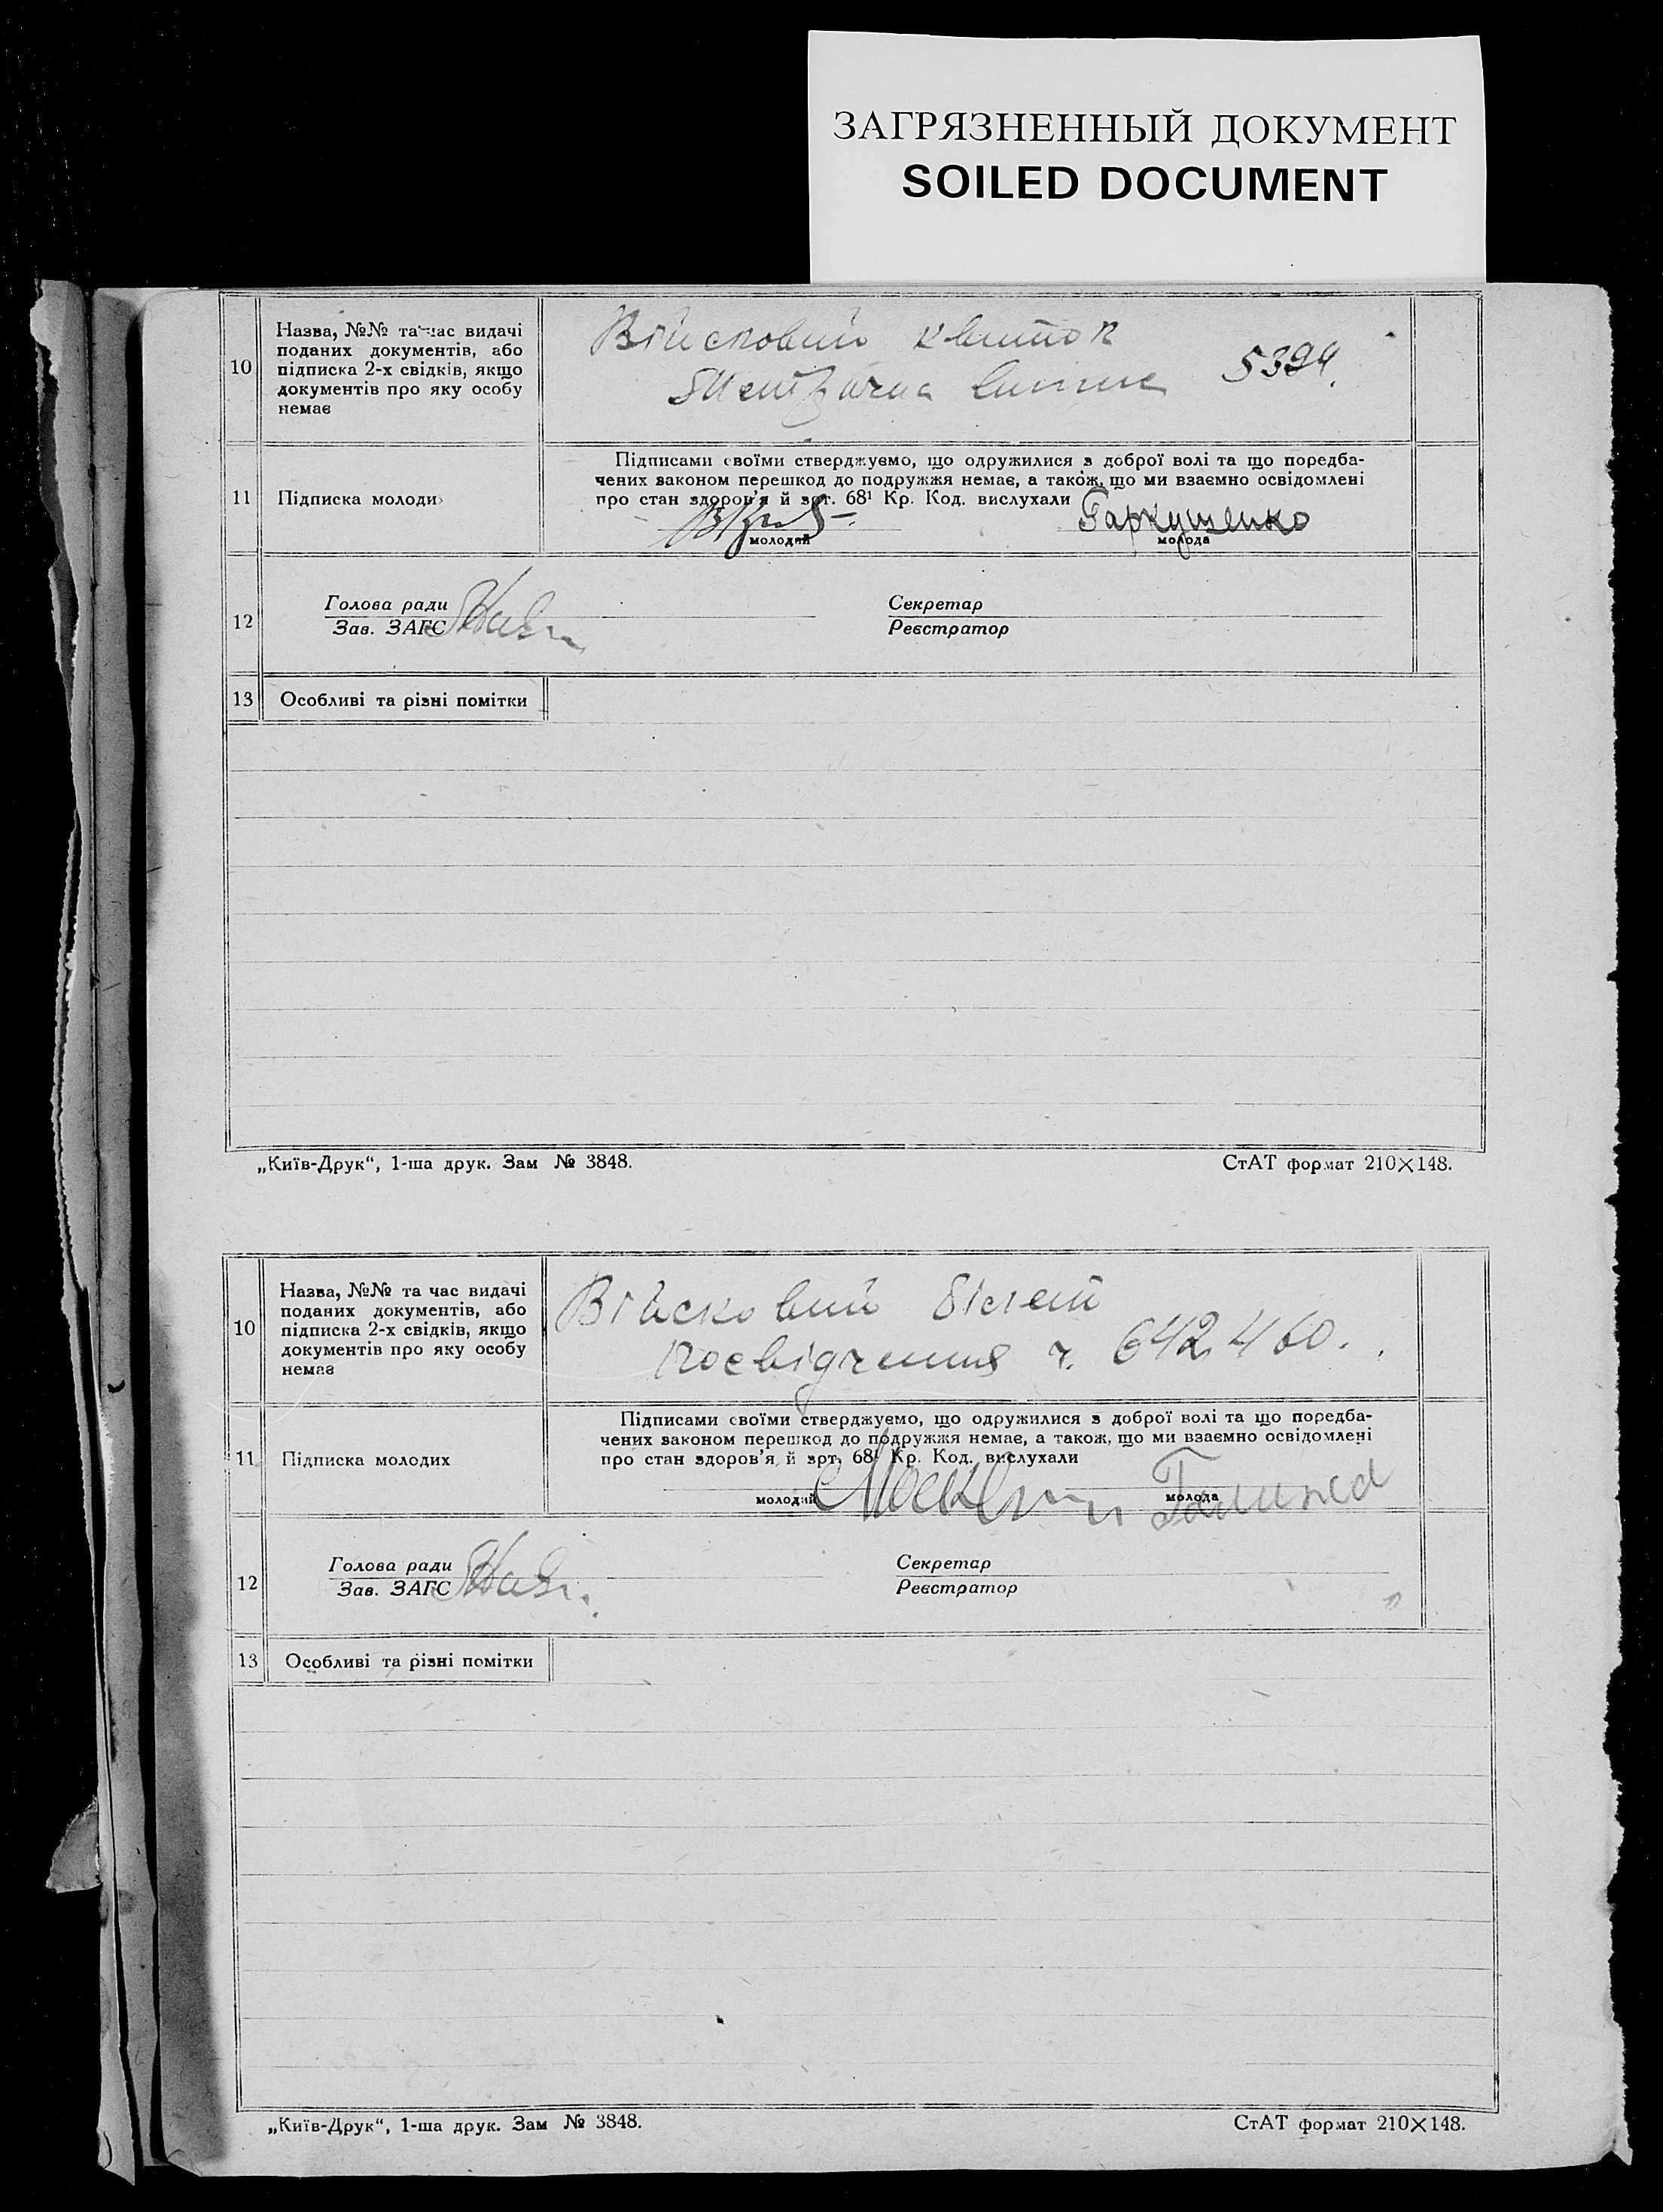 ЗАГРЯЗНЕННЫЙ ДОКУМЕНТ
SOILED DOCUMENT
10
Назва, №№ та час видачі
поданих документів, або
підписка 2-х свідків, якщо
документів про яку особу
немає
Військовий квиток
Метрична 5394.
11
Підписка молоди
Підписами своїми стверджуємо, що одружилися з доброї волі та що поредба-
чених законом перешкод до подружжя немає, а також, що ми взаємно освідомлені
про стан здоров'я й арт. 68¹ Кр. Код. вислухали
Гаркушенко
молодий молода
12
Голова ради Секретар
Зав. ЗАГС Реєстратор
13
Особливі та різні помітки
„Київ-Друк“, 1-ша друк. Зам № 3848. СтАТ формат 210×148.
10
Назва, №№ та час видачі
поданих документів, або
підписка 2-х свідків, якщо
документів про яку особу
немає
Військовий білет
посвідчення ч. 642460.
11
Підписка молодих
Підписами своїми стверджуємо, що одружилися з доброї волі та що поредба-
чених законом перешкод до подружжя немає, а також, що ми взаємно освідомлені
про стан здоров'я й арт. 68¹ Кр. Код. вислухали
молодий молода
12
Голова ради Секретар
Зав. ЗАГС Реєстратор
13
Особливі та різні помітки
„Київ-Друк“, 1-ша друк. Зам № 3848. СтАТ формат 210×148.